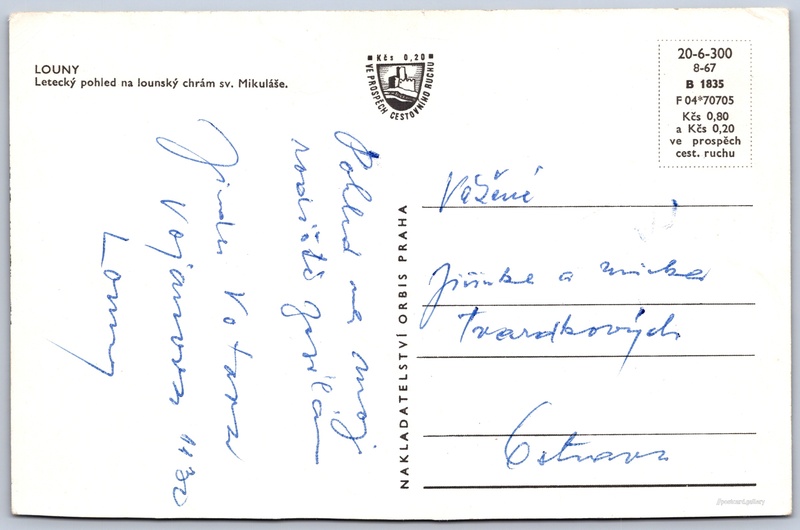 LOUNY
Letecký pohled na lounský chrám sv. Mikuláše.
Kčs 0,20
VE PROSPĚCH CESTOVNÍHO RUCHU
20-6-300
8-67
B 1835
F 04*70705
Kčs 0,80
a Kčs 0,20
ve prospěch
cest. ruchu
NAKLADATELSTVÍ ORBIS PRAHA
Pohled na moje
rodiště posílám
Louny
Vážené
Jiřinke a
Tvardkových
Ostrava